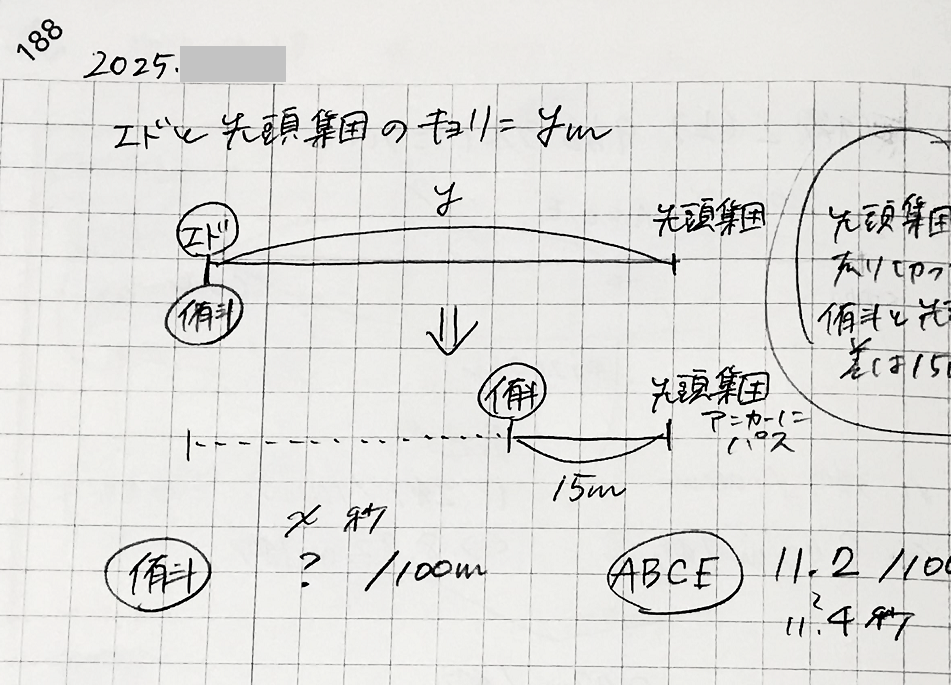 188
2025.
エドと先頭集団のキョリ=ym
y
エド
先頭集団
侑斗
侑斗
先頭集団
アンカーに
パス
15m
先頭集団
侑斗と先
差は15
x 秒
侑斗
? /100m
ABCE
11.2 /100
?
11.4 秒